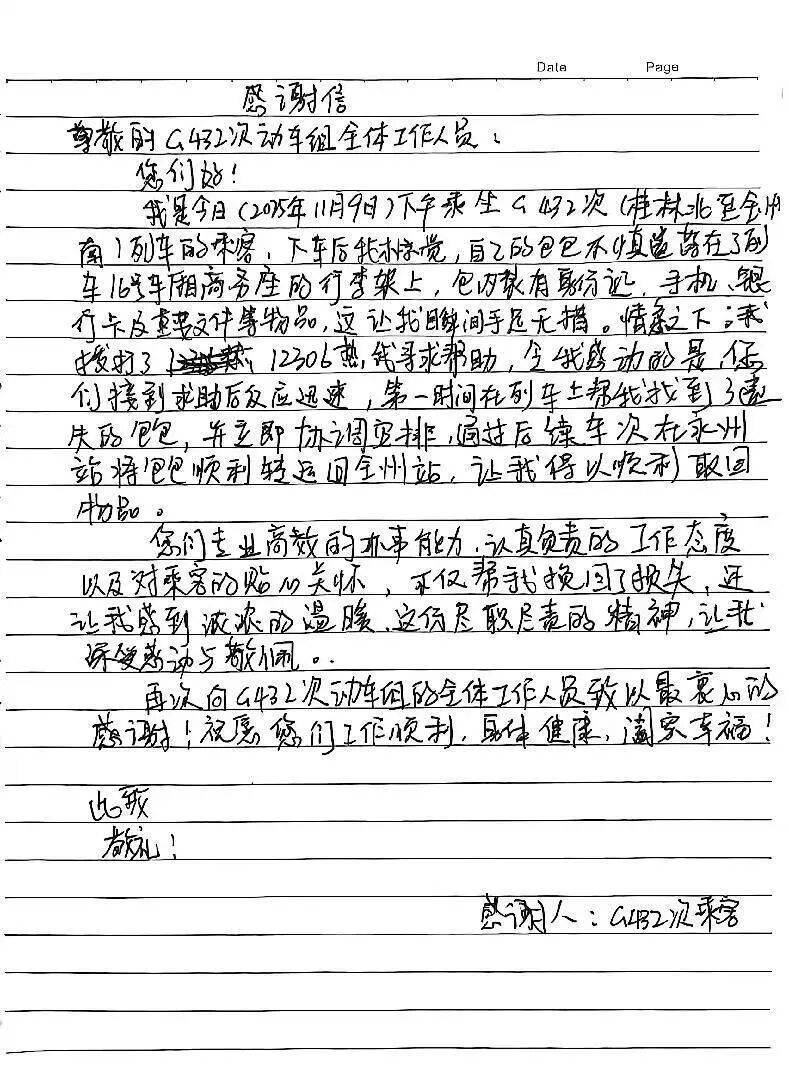 Date Page
感谢信
尊敬的G432次动车组全体工作人员：
您们好！
我是今日（2025年11月9日）下午乘坐G432次（桂林北至全州
南）列车的乘客，下车后我才惊觉，自己的包包不慎遗落在了列
车16号车厢商务座的行李架上，包内装有身份证、手机、银
行卡及重要文件等物品，这让我瞬间手足无措。情急之下，我
拨打了 12306热线寻求帮助，令我感动的是，您
们接到求助后反应迅速，第一时间在列车上帮我找到了遗
失的包包，并立即协调安排，通过后续车次在永州
站将包包顺利转运回全州站，让我得以顺利取回
物品。
您们专业高效的办事能力、认真负责的工作态度
以及对乘客的贴心关怀，不仅帮我挽回了损失，还
让我感到浓浓的温暖。这份尽职尽责的精神，让我
深受感动与敬佩。
再次向G432次动车组的全体工作人员致以最衷心的
感谢！祝愿您们工作顺利，身体健康，阖家幸福！
此致
敬礼！
感谢人：G432次乘客